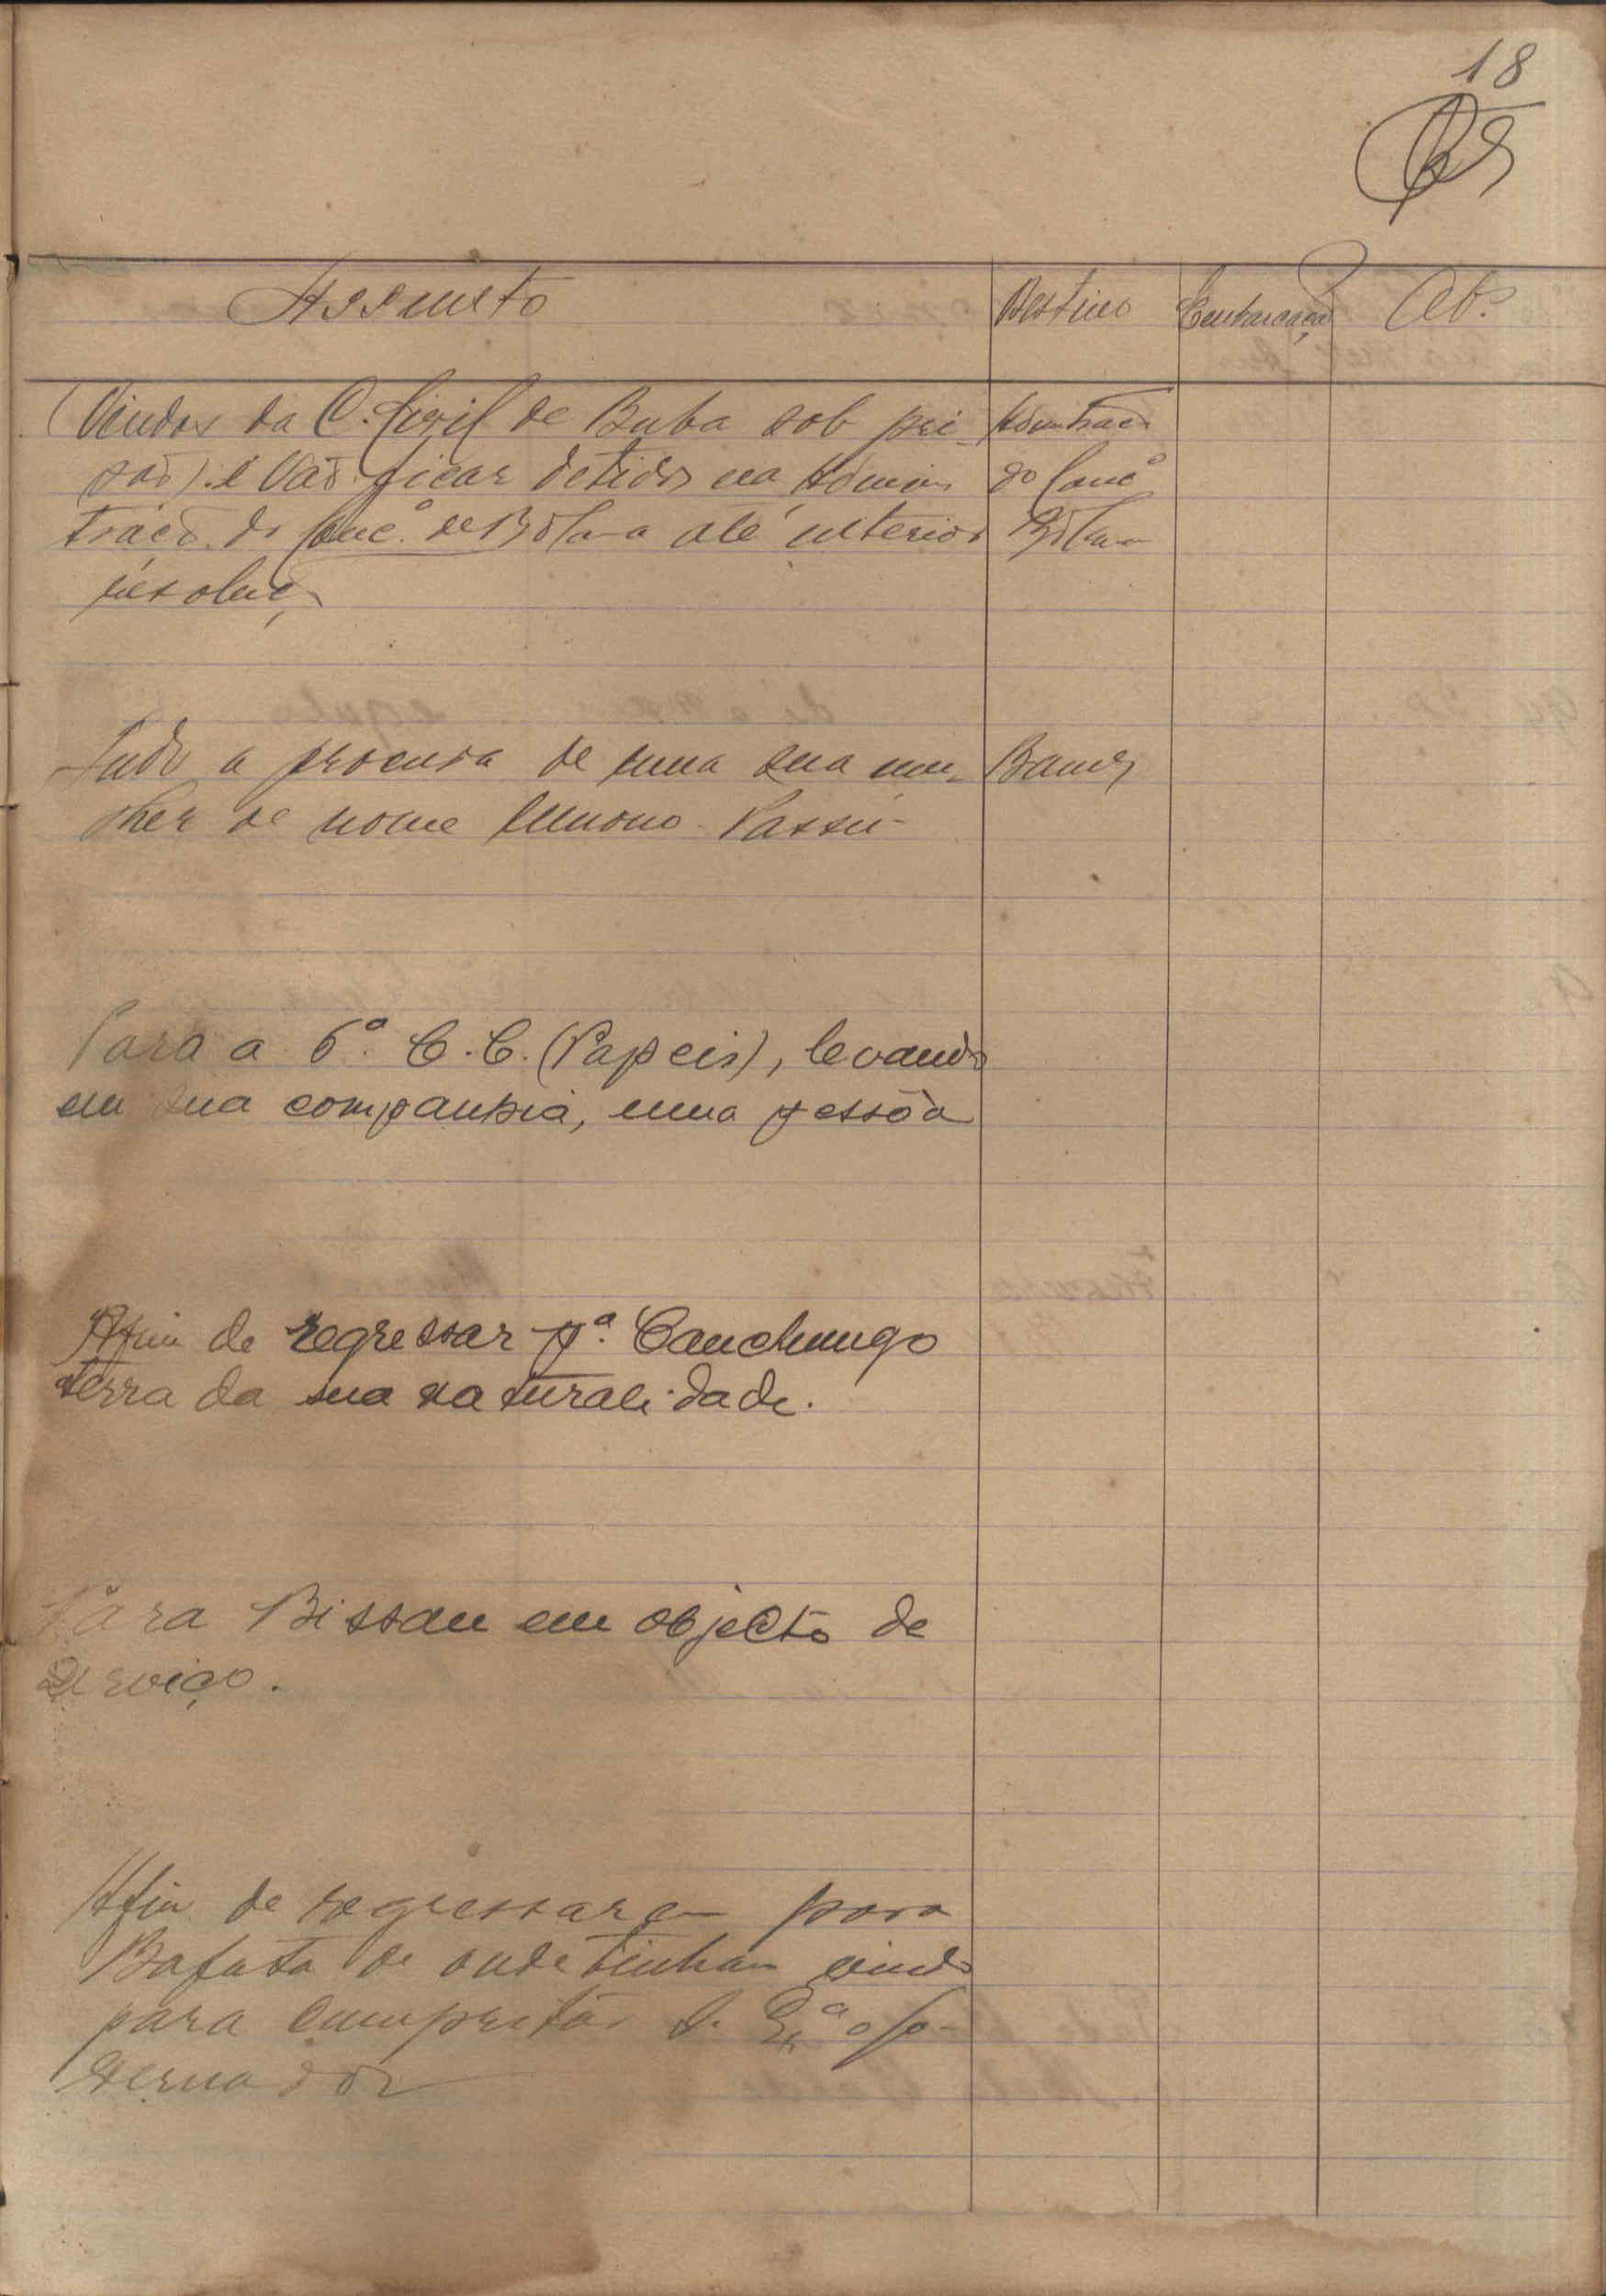 18
Assunto
Destino
Embarcação
Obs
(Vindos da C. Civil de Buba sob pri-
são) e vão ficar detidos na Adminis
tracã do Conc.º de Bolama até ulterior
resoluç
Admtracã
do Conc.º
Bolama
Indo a procura de uma sua mu-
lher de nome
Bam
Para a 6.ª C.C. (Papeis), levando
em sua companhia, uma pessôa
Afim de regressar pª. Canchungo
terra da sua naturalidade.
Para Bissau em objecto de
serviço.
Afim de regressarem para
Bafata de onde tinham vindo
para cumpritar S. Exª o Go-
vernador